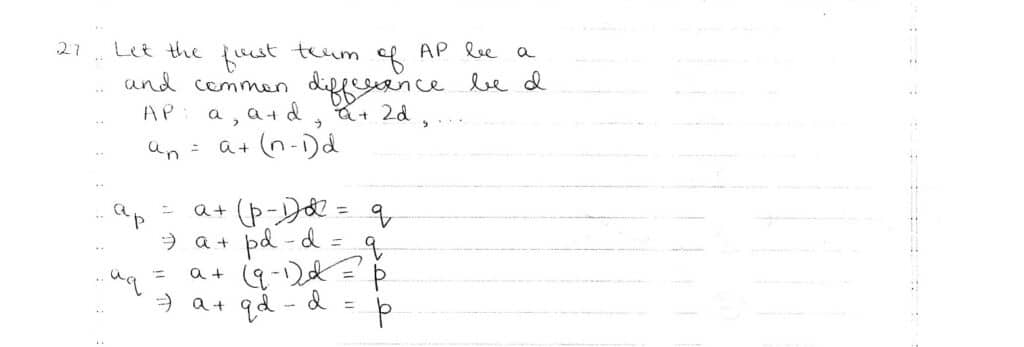 27 Let the first term of AP be a
and common difference be d
AP: a, a+d, a+2d, ...
an = a+(n-1)d
ap = a+(p-1)d = q
⇒ a+pd-d = q
aq = a+(q-1)d = p
⇒ a+qd-d = p